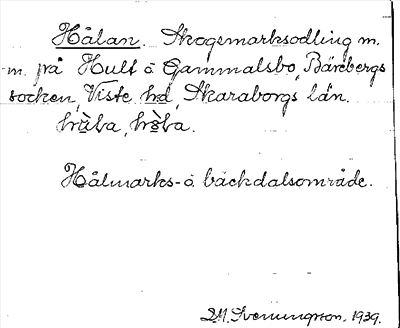 Hålan. Skogsmarksodling m.
m. på Hult o Gammalsbo, Bärebergs
socken, Viste hd, Skaraborgs län.
Hålmarks- o bäckdalsområde.
Svenungsson. 1939.